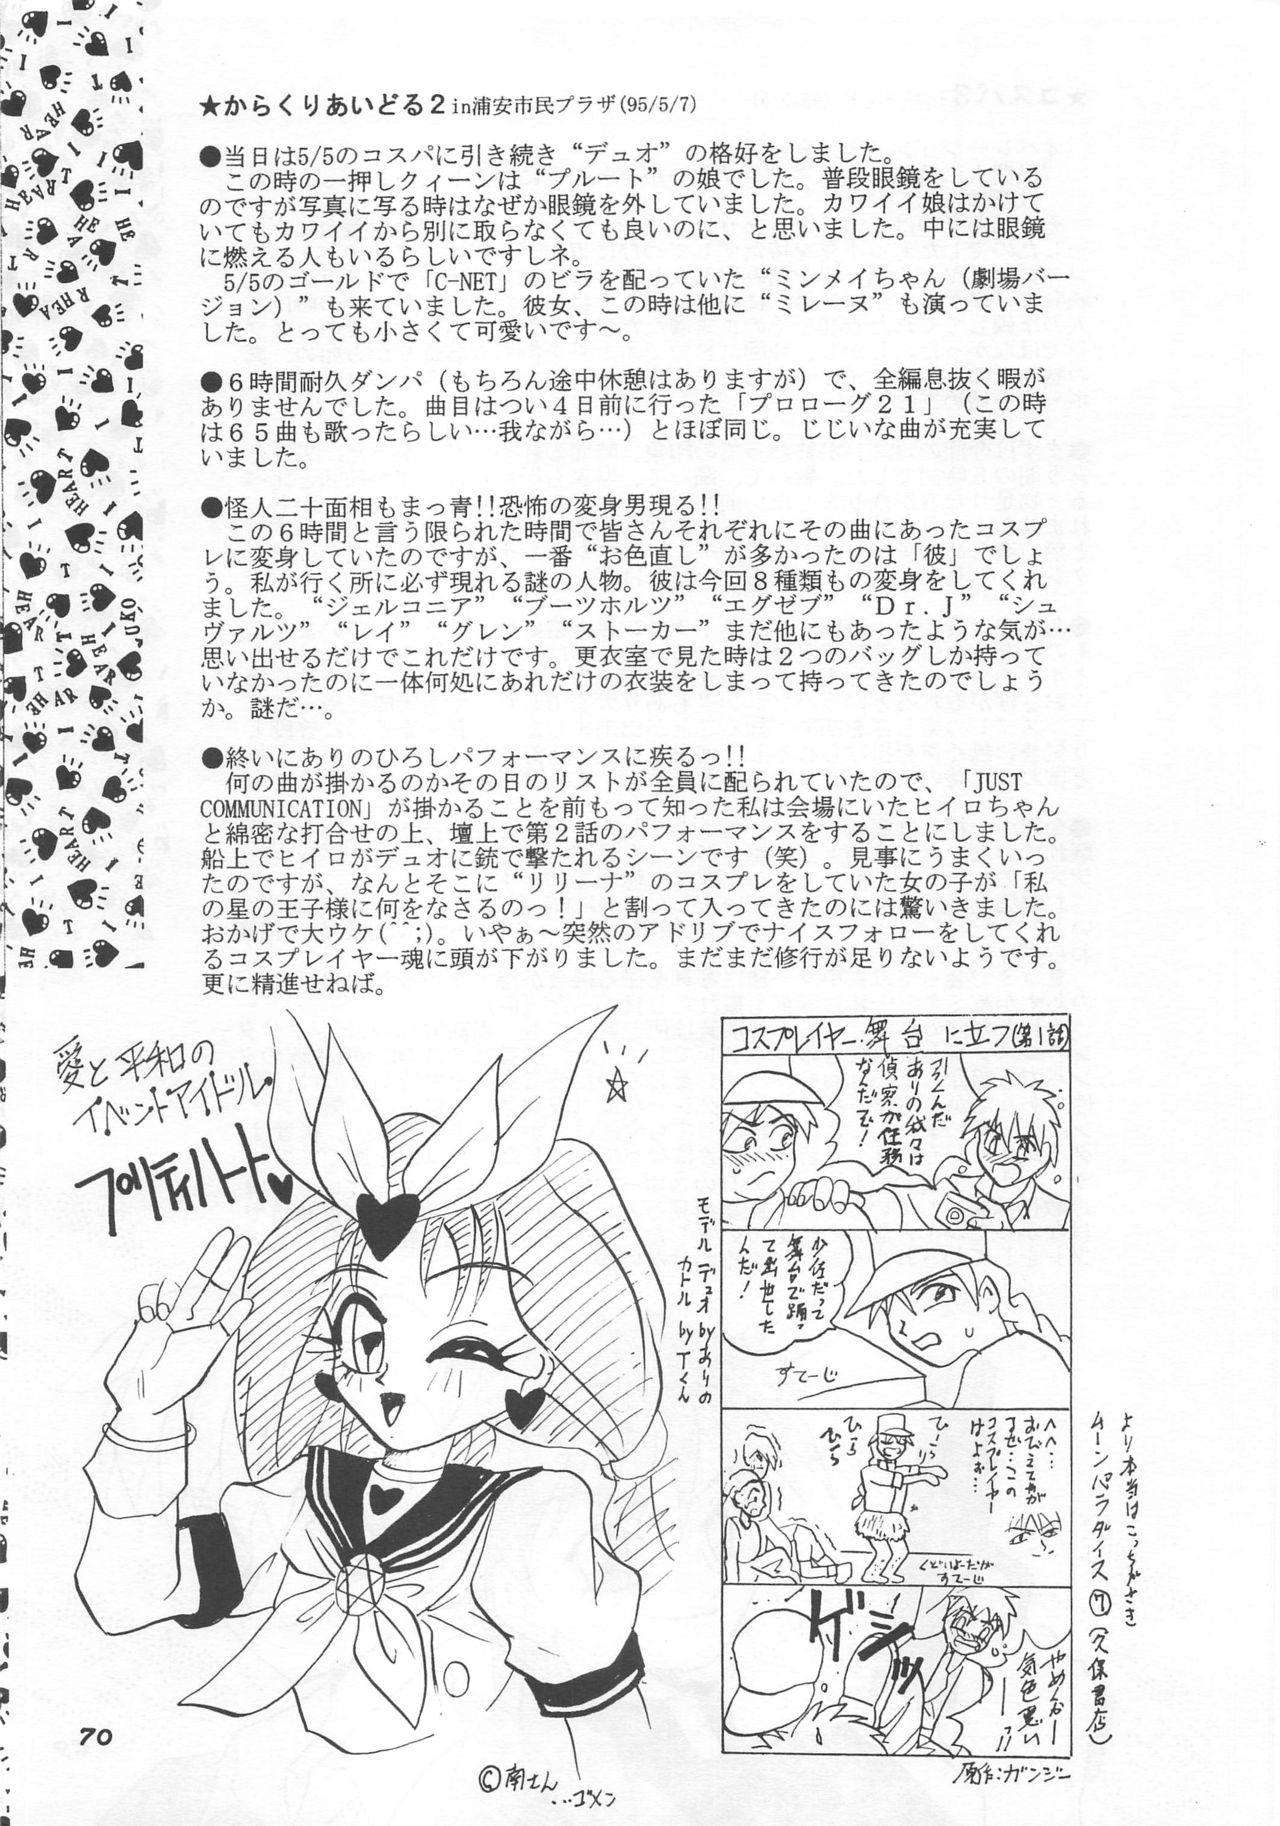 ★からくりあいどる２in浦安市民プラザ(95/5/7)
●当日は5/5のコスパに引き続き“デュオ”の格好をしました。
この時の一押しクィーンは“プルート”の娘でした。普段眼鏡をしている
のですが写真に写る時はなぜか眼鏡を外していました。カワイイ娘はかけて
いてもカワイイから別に取らなくても良いのに、と思いました。中には眼鏡
に燃える人もいるらしいですしネ。
5/5のゴールドで「C-NET」のビラを配っていた“ミンメイちゃん（劇場バー
ジョン）”も来ていました。彼女、この時は他に“ミレーヌ”も演っていま
した。とっても小さくて可愛いです～。
●６時間耐久ダンパ（もちろん途中休憩はありますが）で、全編息抜く暇が
ありませんでした。曲目はつい４日前に行った「プロローグ２１」（この時
は６５曲も歌ったらしい…我ながら…）とほぼ同じ。じじいな曲が充実して
いました。
●怪人二十面相もまっ青!!恐怖の変身男現る!!
この６時間と言う限られた時間で皆さんそれぞれにその曲にあったコスプ
レに変身していたのですが、一番“お色直し”が多かったのは「彼」でしょ
う。私が行く所に必ず現れる謎の人物。彼は今回８種類もの変身をしてくれ
ました。“ジェルコニア”“ブーツホルツ”“エグゼブ”“Ｄｒ.Ｊ”“シュ
ヴァルツ”“レイ”“グレン”“ストーカー”まだ他にもあったような気が…
思い出せるだけでこれだけです。更衣室で見た時は２つのバッグしか持って
いなかったのに一体何処にあれだけの衣装をしまって持ってきたのでしょう
か。謎だ…。
●終いにありのひろしパフォーマンスに疾るっ!!
何の曲が掛かるのかその日のリストが全員に配られていたので、「JUST
COMMUNICATION」が掛かることを前もって知った私は会場にいたヒイロちゃん
と綿密な打合せの上、壇上で第２話のパフォーマンスをすることにしました。
船上でヒイロがデュオに銃で撃たれるシーンです（笑）。見事にうまくいっ
たのですが、なんとそこに“リリーナ”のコスプレをしていた女の子が「私
の星の王子様に何をなさるのっ！」と割って入ってきたのには驚いきました。
おかげで大ウケ(^^;)。いやぁ～突然のアドリブでナイスフォローをしてくれ
るコスプレイヤー魂に頭が下がりました。まだまだ修行が足りないようです。
更に精進せねば。
愛と平和の
イベントアイドル・
プリティハート♥
©南さん
…ゴメン
モデル デュオ byありの
カトル by Tくん
コスプレイヤー舞台に立つ(第1話)
ありの我々は
偵察が任務
なんだぞ!
少佐だって
舞台で踊っ
て
んだ!
すてーじ
へへ…
コスプレイヤー
けよぉ…
ひーら
ひーら
すてーじ
ゲシッッ
やめんかー
気色悪い
ーっ!!
原作:ガンジー
より本当はこっちがさき
ムーンパラダイス⑦(久保書店)
70
I
HEART